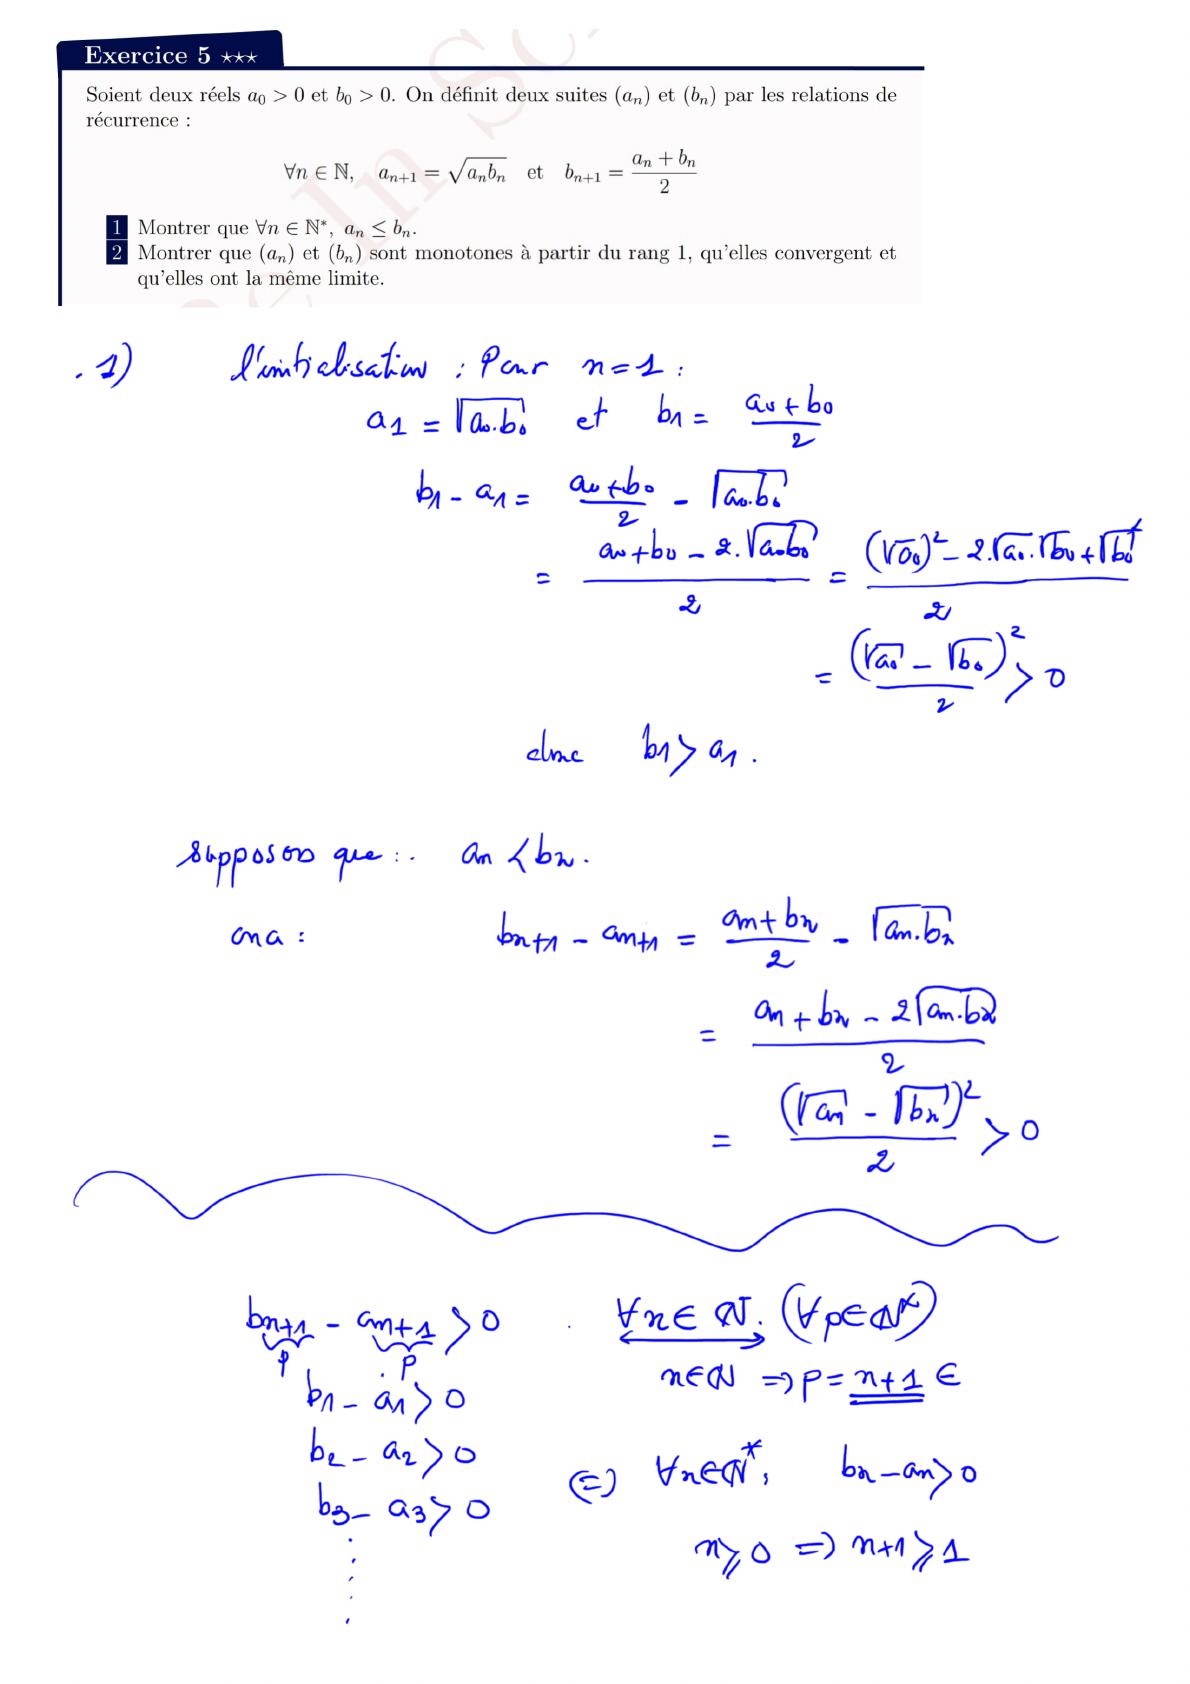 Exercice 5 ⋆⋆⋆
Soient deux réels a₀ > 0 et b₀ > 0. On définit deux suites (aₙ) et (bₙ) par les relations de
récurrence :
∀n ∈ ℕ, aₙ₊₁ = √(aₙbₙ) et bₙ₊₁ = (aₙ + bₙ)/2
1 Montrer que ∀n ∈ ℕ*, aₙ ≤ bₙ.
2 Montrer que (aₙ) et (bₙ) sont monotones à partir du rang 1, qu'elles convergent et
qu'elles ont la même limite.
. 1) l'initialisation : Pour n = 1 :
a₁ = √(a₀.b₀) et b₁ = (a₀ + b₀)/2
b₁ - a₁ = (a₀ + b₀)/2 - √(a₀.b₀)
= (a₀ + b₀ - 2.√(a₀b₀))/2 = ((√a₀)² - 2.√a₀.√b₀ + √b₀²)/2
= (√a₀ - √b₀)²/2 > 0
donc b₁ > a₁.
supposons que : . aₙ < bₙ.
on a : bₙ₊₁ - aₙ₊₁ = (aₙ + bₙ)/2 - √(aₙ.bₙ)
= (aₙ + bₙ - 2√(aₙ.bₙ))/2
= (√aₙ - √bₙ)²/2 > 0
bₙ₊₁ - aₙ₊₁ > 0 . ∀n ∈ ℕ. (∀p ∈ ℕ*)
p . p n ∈ ℕ ⇒ p = n+1 ∈
b₁ - a₁ > 0
b₂ - a₂ > 0 (=) ∀n ∈ ℕ*, bₙ - aₙ > 0
b₃ - a₃ > 0
n ⩾ 0 ⇒ n+1 ⩾ 1